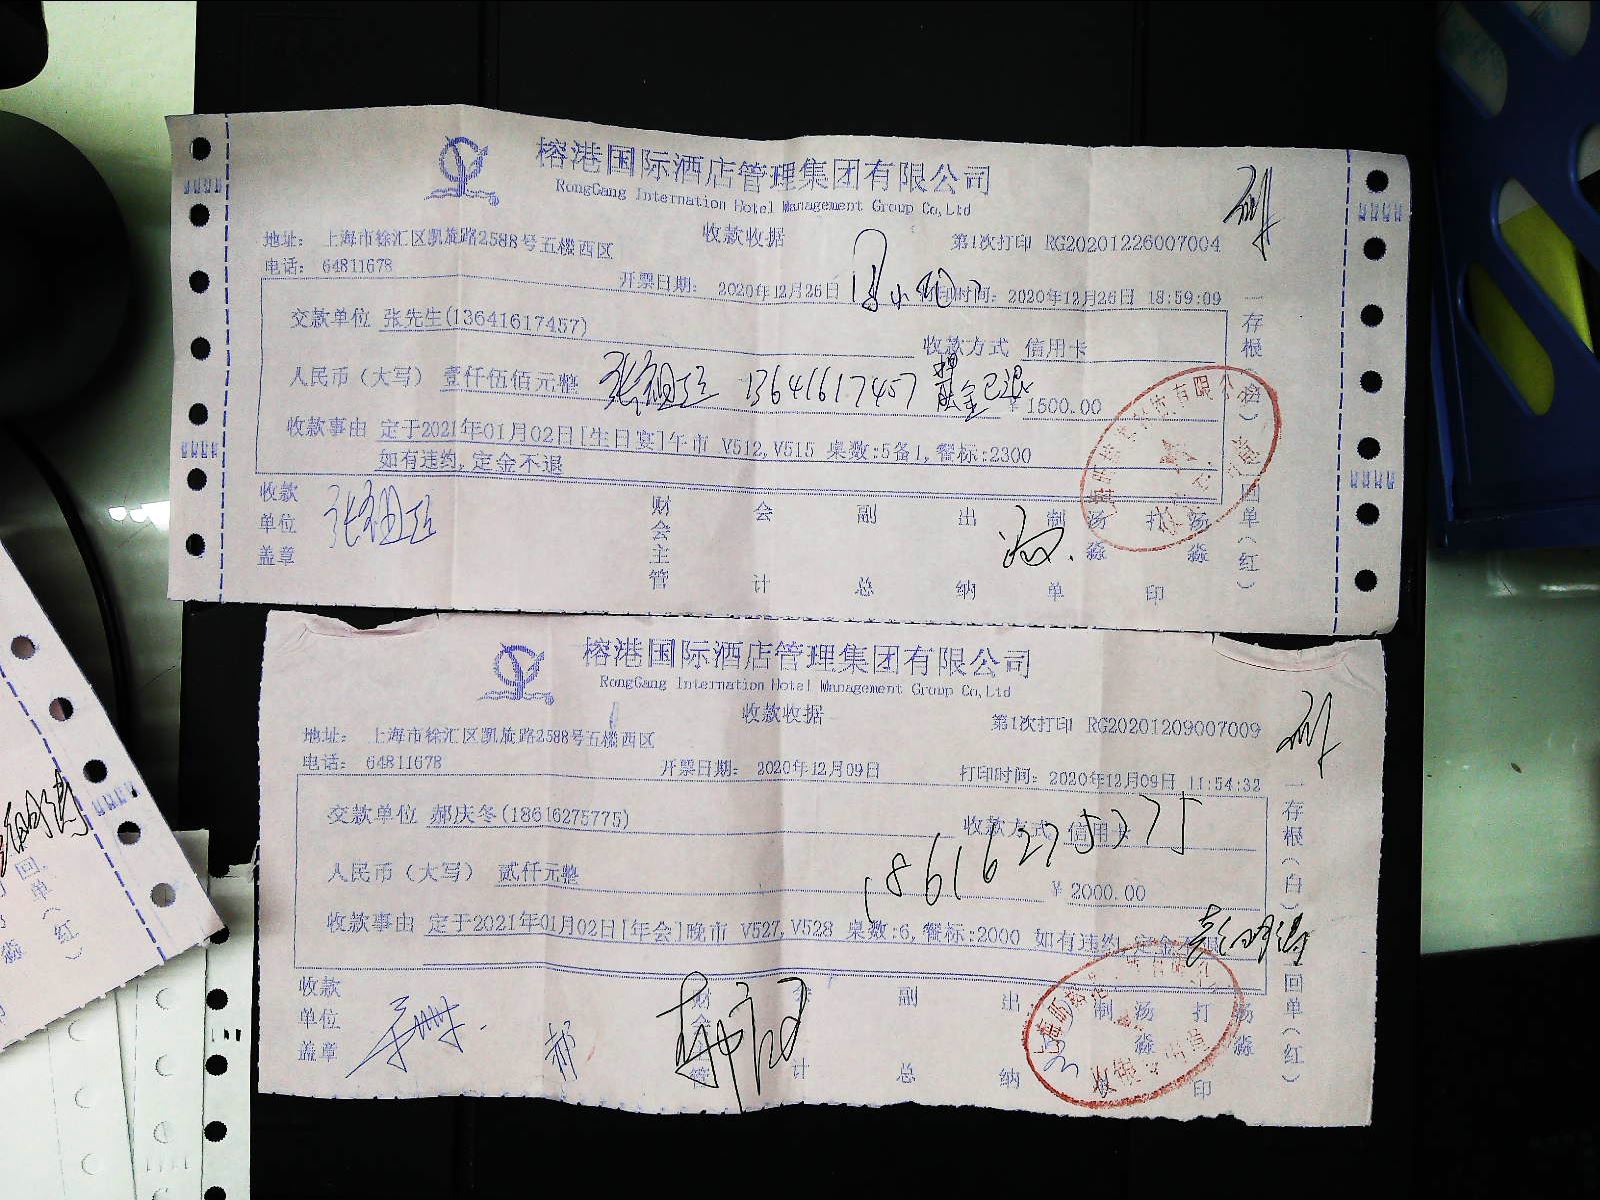 榕港国际酒店管理集团有限公司
RongGang Internation Hotel Management Group Co,Ltd
收款收据
第1次打印 RG20201226007004
地址： 上海市徐汇区凯旋路2588号五楼西区
电话： 64811678
开票日期： 2020年12月26日 打印时间： 2020年12月26日 18:59:09
交款单位 张先生(13641617457)
收款方式 信用卡
人民币（大写） 壹仟伍佰元整 13641617457 押金已退 ¥ 1500.00
收款事由 定于2021年01月02日[生日宴]午市 V512,V515 桌数:5备1,餐标:2300
如有违约,定金不退
收款单位盖章 财会主管 会计 副总 出纳 制单 汤淼 打印 汤淼
存根（白） 回单（红）
榕港国际酒店管理集团有限公司
RongGang Internation Hotel Management Group Co,Ltd
收款收据
第1次打印 RG20201209007009
地址： 上海市徐汇区凯旋路2588号五楼西区
电话： 64811678
开票日期： 2020年12月09日 打印时间： 2020年12月09日 11:54:32
交款单位 郝庆冬(18616275775)
收款方式 信用卡
人民币（大写） 贰仟元整 ¥ 2000.00
收款事由 定于2021年01月02日[年会]晚市 V527,V528 桌数:6,餐标:2000 如有违约,定金不退
收款单位盖章 郝 财会主管 会计 副总 出纳 制单 汤淼 打印 汤淼
存根（白） 回单（红）
回单（红）
淼